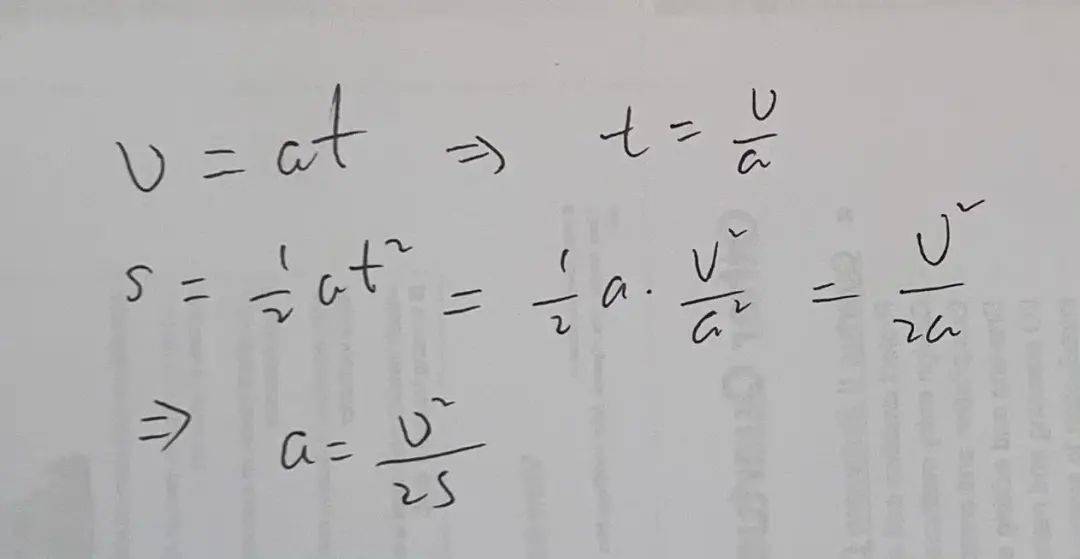 υ = at ⇒ t = υ/a
s = 1/2 at² = 1/2 a · υ²/a² = υ²/2a
⇒ a = υ²/2s